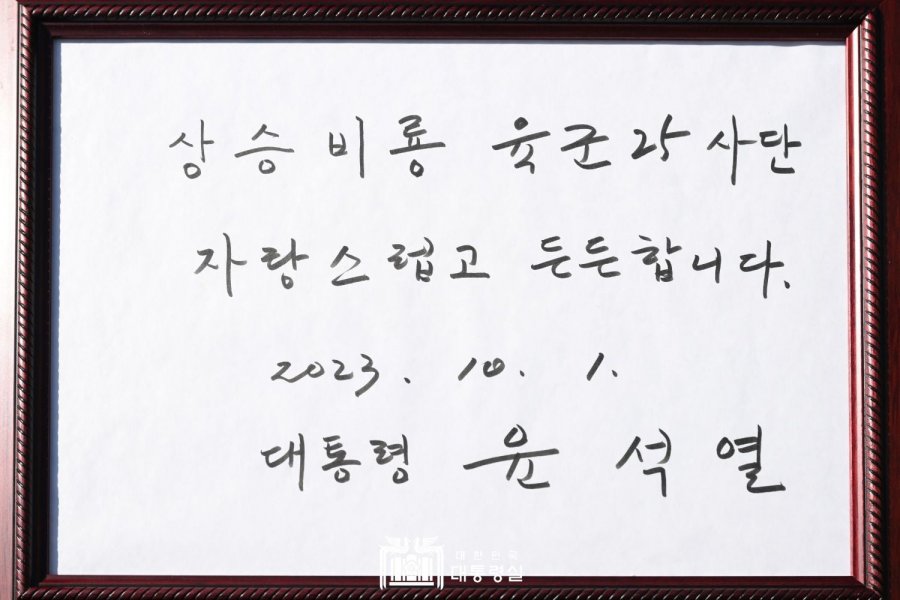 상승비룡 육군25사단
자랑스럽고 든든합니다.
2023. 10. 1.
대통령 윤석열
대한민국
대통령실